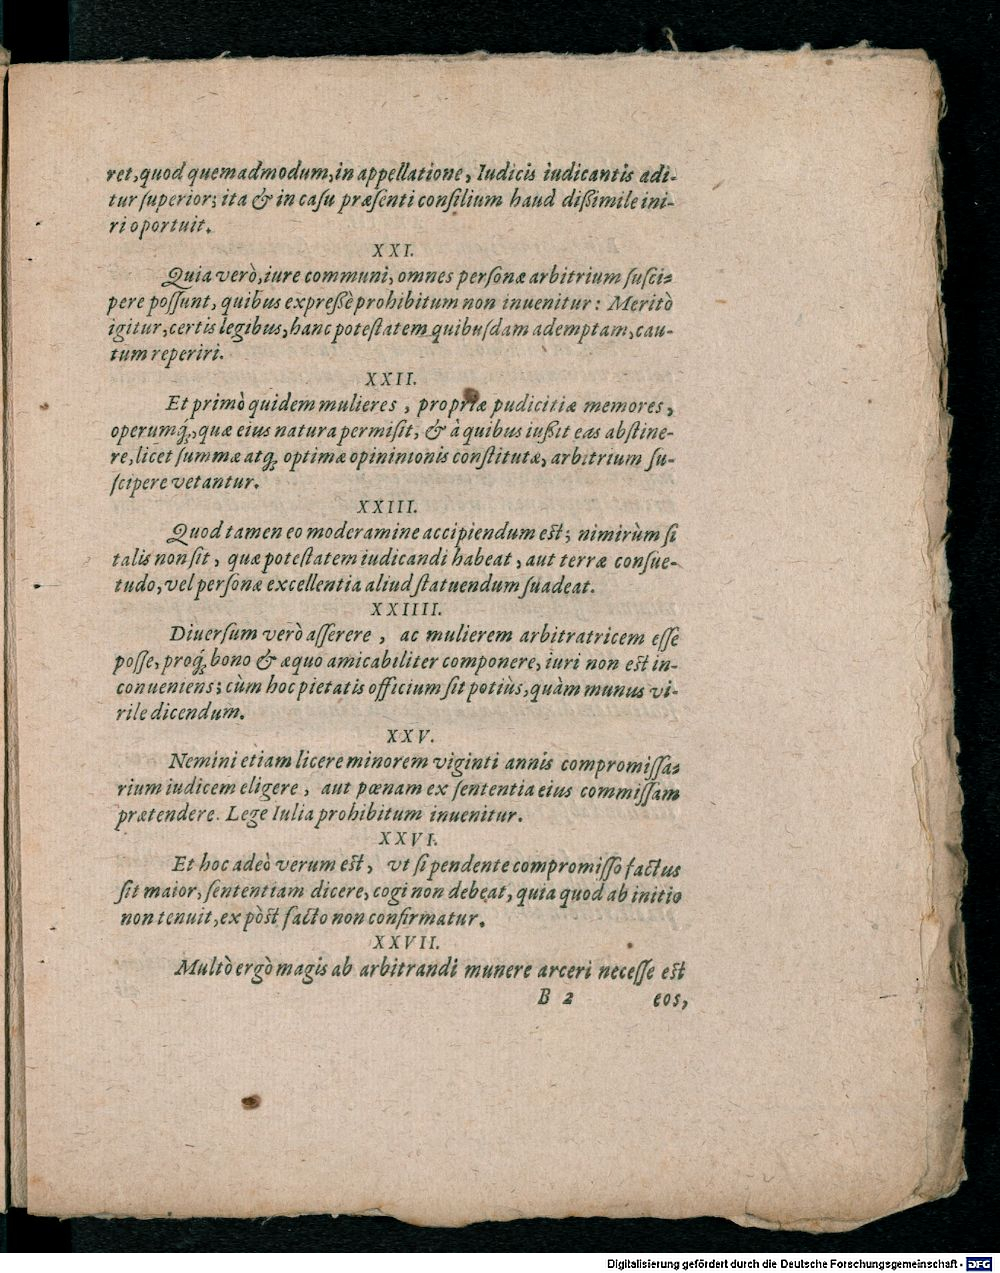 ret, quod quemadmodum, in appellatione, Iudicis iudicantis adi-
tur superior; ita & in casu præsenti consilium haud dissimile ini-
ri oportuit.
XXI.
Quia verò, iure communi, omnes personæ arbitrium susci-
pere possunt, quibus expressè prohibitum non inuenitur: Meritò
igitur, certis legibus, hanc potestatem quibusdam ademptam, cau-
tum reperiri.
XXII.
Et primò quidem mulieres, propriæ pudicitiæ memores,
operumq́;, quæ eius natura permisit, & à quibus iussit eas abstine-
re, licet summæ atq; optimæ opininionis constitutæ, arbitrium su-
scipere vetantur.
XXIII.
Quod tamen eo moderamine accipiendum est; nimirùm si
talis non sit, quæ potestatem iudicandi habeat, aut terræ consue-
tudo, vel personæ excellentia aliud statuendum suadeat.
XXIIII.
Diuersum verò asserere, ac mulierem arbitratricem esse
posse, proq́; bono & æquo amicabiliter componere, iuri non est in-
conueniens; cùm hoc pietatis officium sit potiùs, quàm munus vi-
rile dicendum.
XXV.
Nemini etiam licere minorem viginti annis compromissa-
rium iudicem eligere, aut pœnam ex sententia eius commissam
prætendere. Lege Iulia prohibitum inuenitur.
XXVI.
Et hoc adeò verum est, vt si pendente compromisso factus
sit maior, sententiam dicere, cogi non debeat, quia quod ab initio
non tenuit, ex pòst facto non confirmatur.
XXVII.
Multò ergò magis ab arbitrandi munere arceri necesse est
B 2 eos,
Digitalisierung gefördert durch die Deutsche Forschungsgemeinschaft - DFG